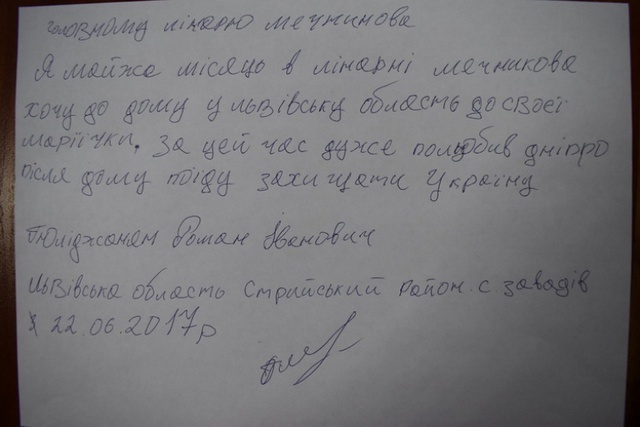 головному лікарю мечникова
Я майже місяць в лікарні мечникова
хочу до дому у львівську область до своєї
марїїчки. за цей час дуже полюбив дніпро
після дому поїду захищати Україну
Роман Іванович
львівська область Стрийський район. с. завадів
22.06.2017р